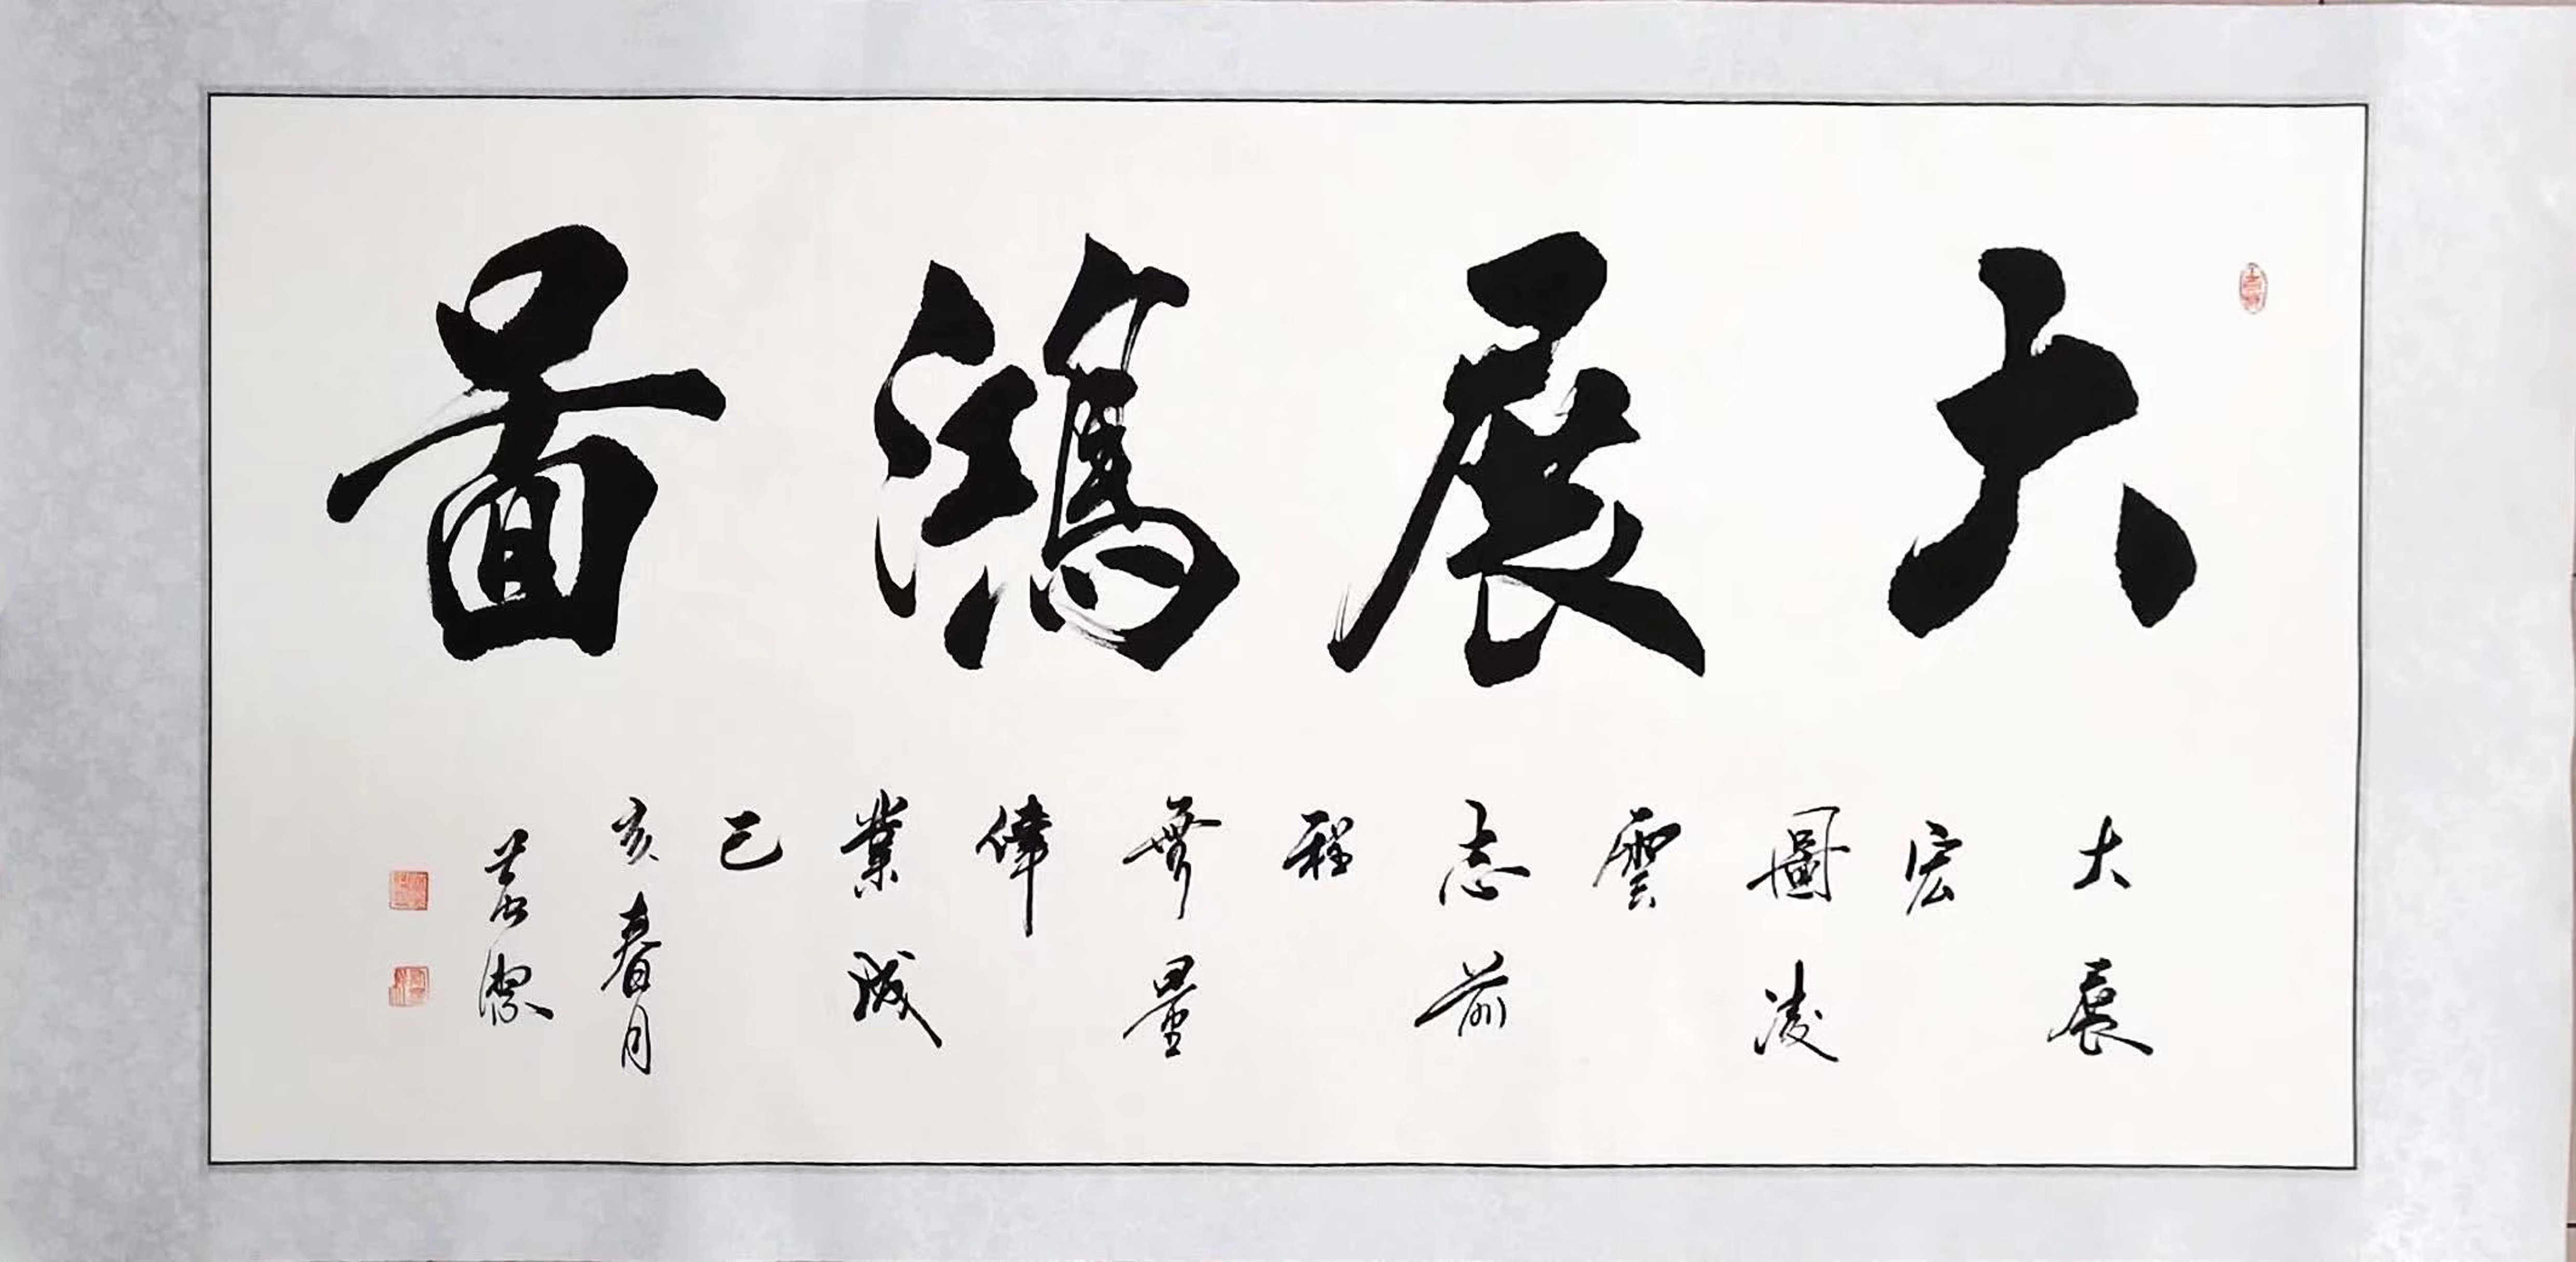 大展鴻啚
大展
宏
圖凌
雲
志前
程
無量
偉
業成
己
亥春月